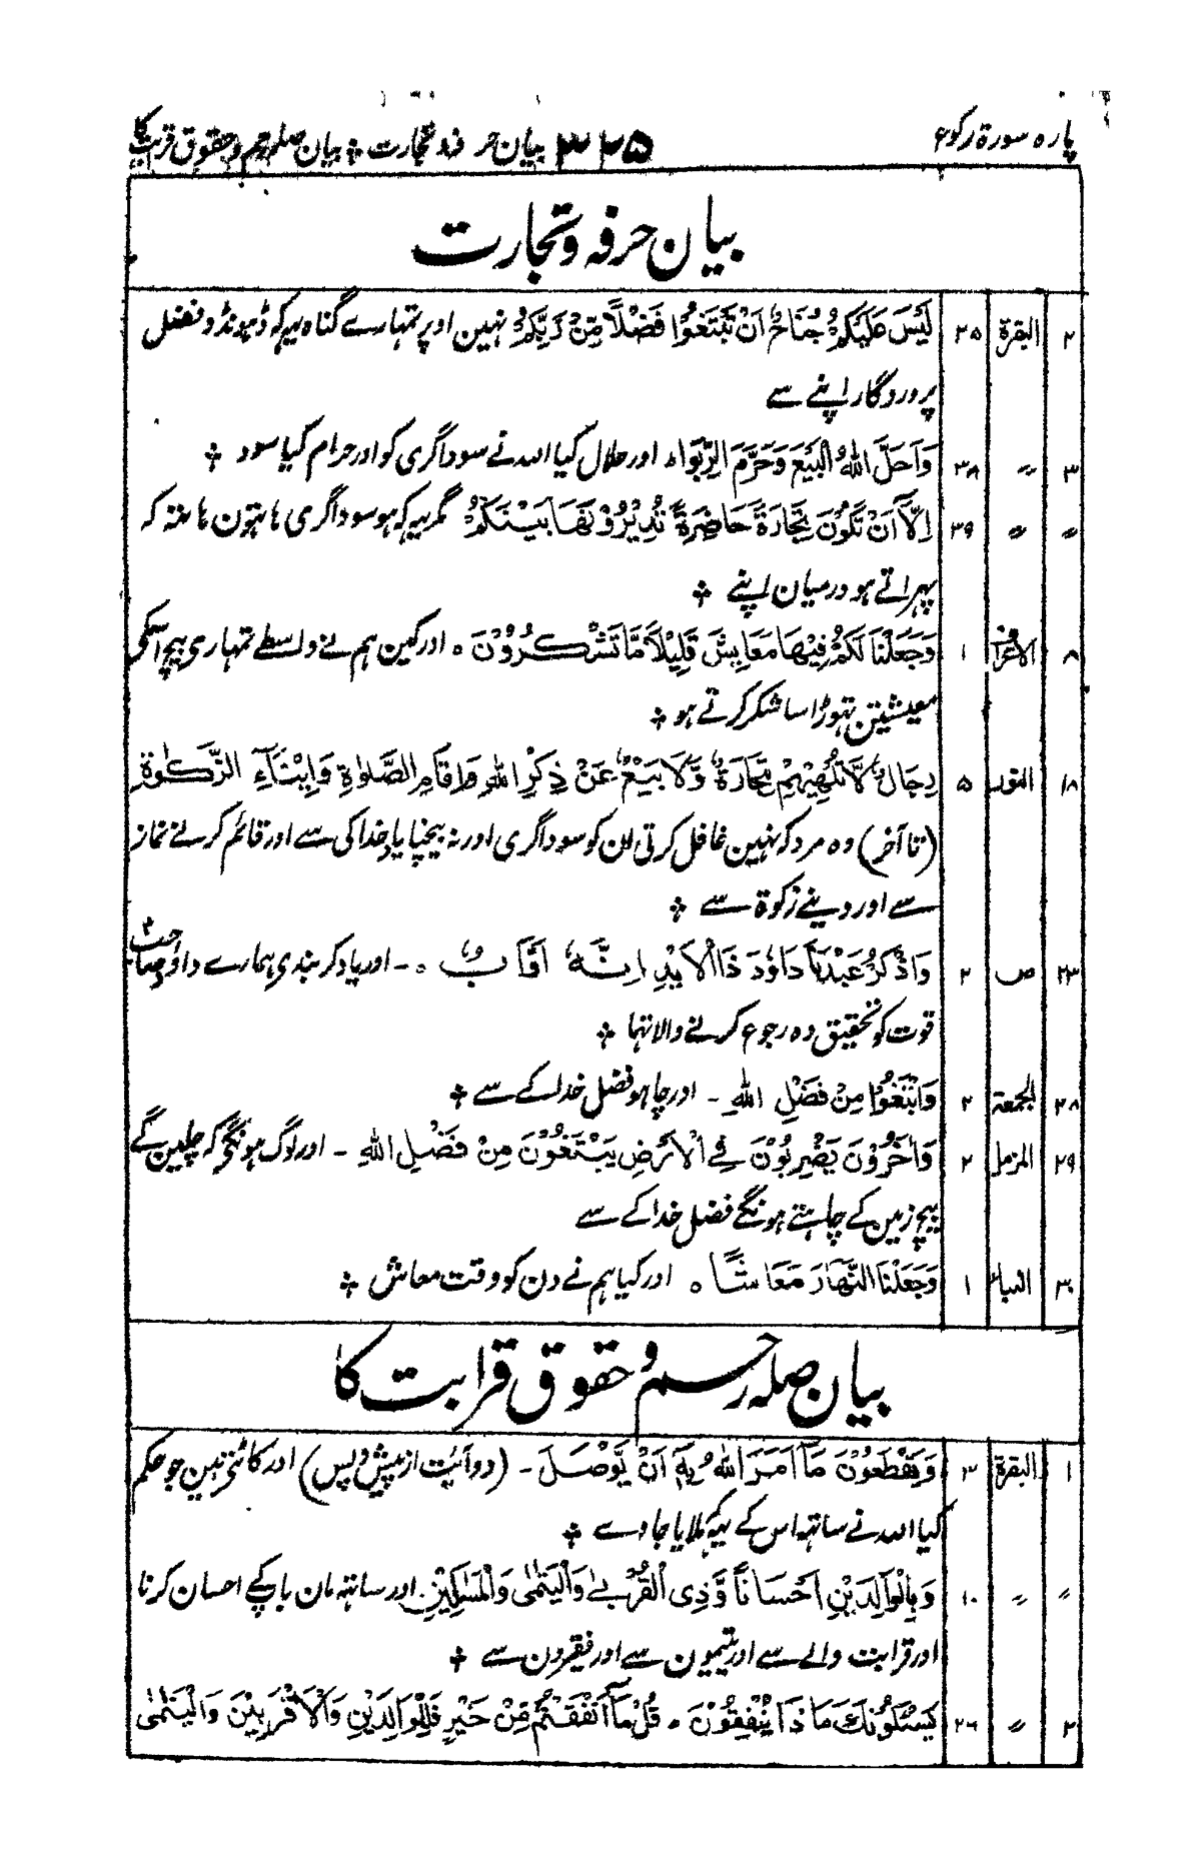 پارہ سورۃ رکوع ۳۲۵ بیان حرفہ و تجارت ؞ بیان صلہ رحم و حقوق قرابت کا
بیان حرفہ و تجارت
۲ البقرۃ ۲۵ لَیْسَ عَلَیْکُمْ جُنَاحٌ اَنْ تَبْتَغُوْا فَضْلًا مِّنْ رَّبِّکُمْ نہین اوپر تمہارے گناہ یہ کہ ڈہونڈو فضل
پروردگار اپنے سے
۳ ״ ۳۸ وَاَحَلَّ اللّٰہُ الْبَیْعَ وَحَرَّمَ الرِّبٰوا ہ اور حلال کیا اللہ نے سوداگری کو اور حرام کیا سود ؞
״ ״ ۳۹ اِلَّآ اَنْ تَکُوْنَ تِجَارَۃً حَاضِرَۃً تُدِیْرُوْنَھَا بَیْنَکُمْ مگر یہ کہ ہو سوداگری ہاتھون ہاتھ کہ
پہراتے ہو درمیان اپنے ؞
۸ الاعراف ۱ وَجَعَلْنَا لَکُمْ فِیْھَا مَعَایِشَ قَلِیْلًا مَّا تَشْکُرُوْنَ ہ اور کین ہم نے واسطے تمہاری بیچ اسکی
معیشتین تہوڑا سا شکر کرتے ہو ؞
۱۸ النور ۵ رِجَالٌ لَّا تُلْھِیْھِمْ تِجَارَۃٌ وَّلَا بَیْعٌ عَنْ ذِکْرِ اللّٰہِ وَاِقَامِ الصَّلٰوۃِ وَاِیْتَآءِ الزَّکٰوۃِ
(تا آخر) وہ مرد کہ نہین غافل کرتی ان کو سوداگری اور نہ بیچنا یاد خدا کی سے اور قائم کرنے نماز
سے اور دینے زکوۃ سے ؞
۲۳ ص ۲ وَاذْکُرْ عَبْدَنَا دَاوٗدَ ذَا الْاَیْدِ اِنَّہٗ اَوَّابٌ ہ ۔ اور یاد کر بندی ہمارے داؤد صاحب
قوت کو تحقیق وہ رجوع کرنے والا تھا ؞
۲۸ الجمعۃ ۲ وَابْتَغُوْا مِنْ فَضْلِ اللّٰہِ ۔ اور چاہو فضل خدا کے سے ؞
۲۹ المزمل ۲ وَاٰخَرُوْنَ یَضْرِبُوْنَ فِی الْاَرْضِ یَبْتَغُوْنَ مِنْ فَضْلِ اللّٰہِ ۔ اور لوگ ہونگے کہ چلین گے
بیچ زمین کے چاہتے ہونگے فضل خدا کے سے
۳۰ النباء ۱ وَجَعَلْنَا النَّھَارَ مَعَاشًا ہ اور کیا ہم نے دن کو وقت معاش ؞
بیان صلہ رحم و حقوق قرابت کا
۱ البقرۃ ۳ وَیَقْطَعُوْنَ مَآ اَمَرَ اللّٰہُ بِہٖٓ اَنْ یُّوْصَلَ ۔ (دو آیت از پیش و پس) اور کاٹتے ہین جو حکم
کیا اللہ نے ساتہ اس کے یہ کہ ملایا جاوے ؞
״ ״ ۱۰ وَبِالْوَالِدَیْنِ اِحْسَانًا وَّذِی الْقُرْبٰے وَالْیَتٰمٰی وَالْمَسٰکِیْنِ اور ساتہ مان باپ کے احسان کرنا
اور قرابت والے سے اور یتیمون سے اور فقیرون سے ؞
۲ ״ ۲۶ یَسْئَلُوْنَکَ مَا ذَا یُنْفِقُوْنَ ہ قُلْ مَآ اَنْفَقْتُمْ مِّنْ خَیْرٍ فَلِلْوَالِدَیْنِ وَالْاَقْرَبِیْنَ وَالْیَتٰمٰی